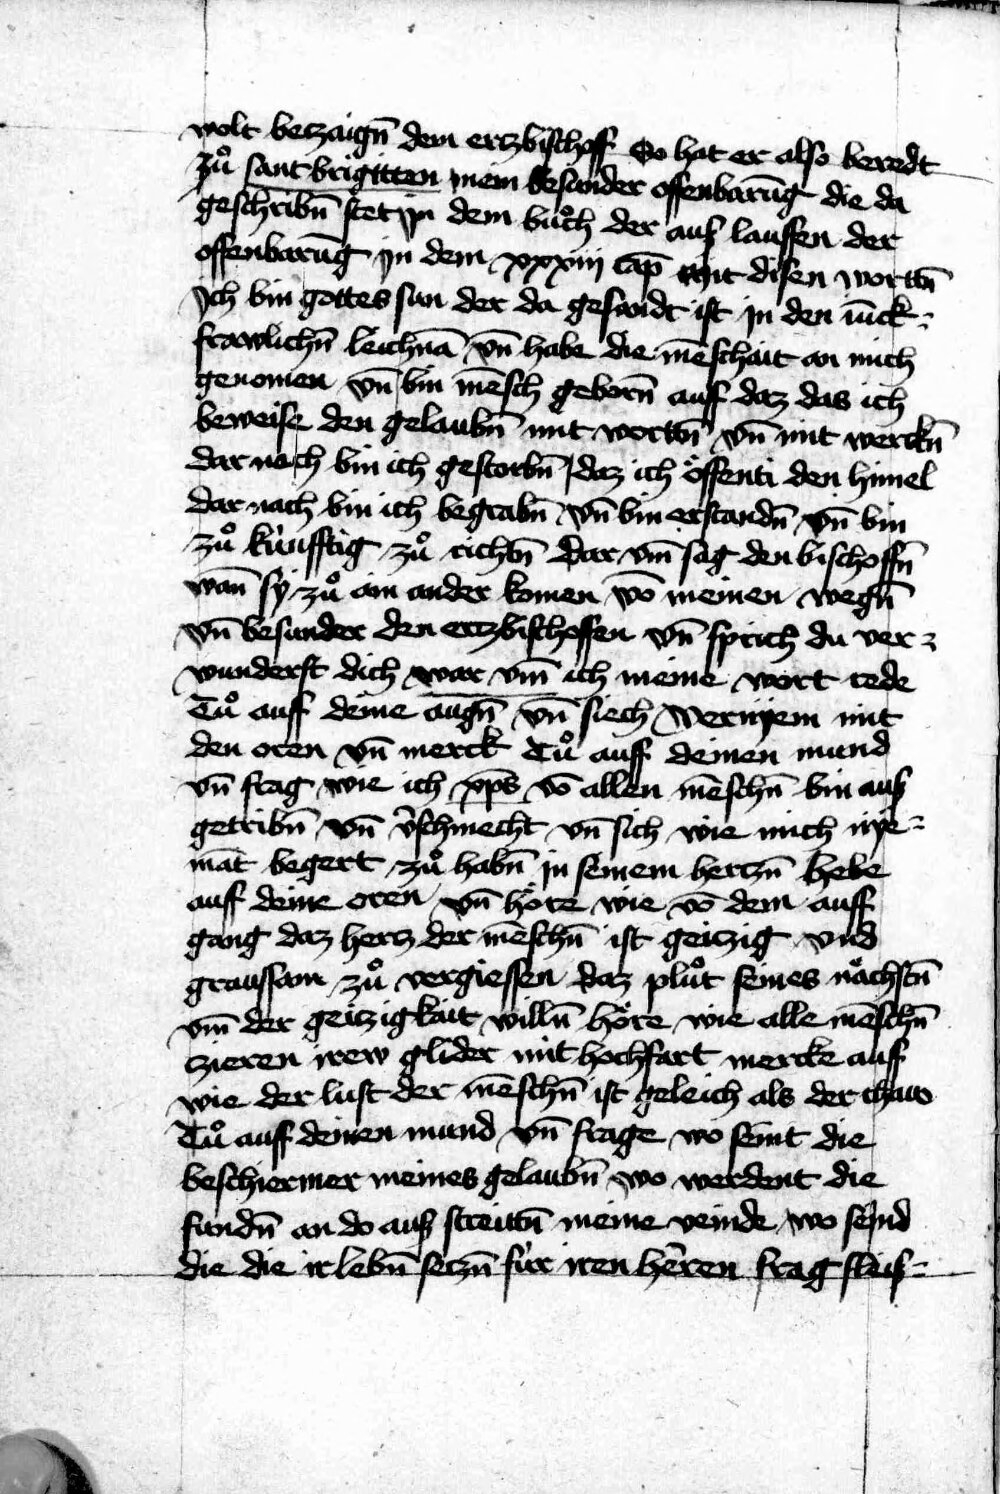 wolt betzaigñ dem ertzbischoff So hat er also beredt
zů sant brigitten jnein besunder offenbarūg die da
geschribñ stet jn dem bůch der auß lauffen der
offenbarūg jn dem xxxiij cap̄ mit disen wortñ
Ich bin gottes sun der da gesandt ist jn den iūck⸗
frawlichñ leichnā vñ habe die mēschait an mich
genomen vñ bin mēsch geborñ auff daz das ich
beweise den gelaubñ mit wortñ vñ mit werckñ
dar nach bin ich gestorbñ daz ich öffenti den himel
dar nach bin ich begrabñ vñ bin erstandñ vñ bin
zů künfftig zů richtñ Dar vm̄ sag den bischoffñ
wañ sy zů ain ander komen vō meinen wegñ
vñ besunder den ertzbischoffen vñ sprich du ver⸗
wunderst dich war vm̄ ich meine wort rede
Tů auff deine augñ vñ siech Vernym mit
den oren vñ merck Tů auff deinen mund
vñ frag wie ich xp̄s vō allen mēschñ bin auß
getribñ vñ v̄schmecht vñ sich wie mich nye⸗
māt begert zů habñ jn seinem hertzñ Hebe
auff deine oren vñ höre wie vō dem auff
gang daz hertz der mēschñ ist geitzig vnd
graussam zů vergiessen daz plůt seines nächstñ
vm̄ der geitzigkait willñ höre wie alle mēschñ
zieren irew glider mit hochfart mercke auf
wie der lust der mēschñ ist geleich als der thaw
Tů auff deinen mund vñ frage wo seint die
beschiermer meines gelaubñ wo werdent die
fundñ an do auß streittñ meine veinde wo seind
die die ir lebñ setzñ für iren h̄eren frag fleiß⸗